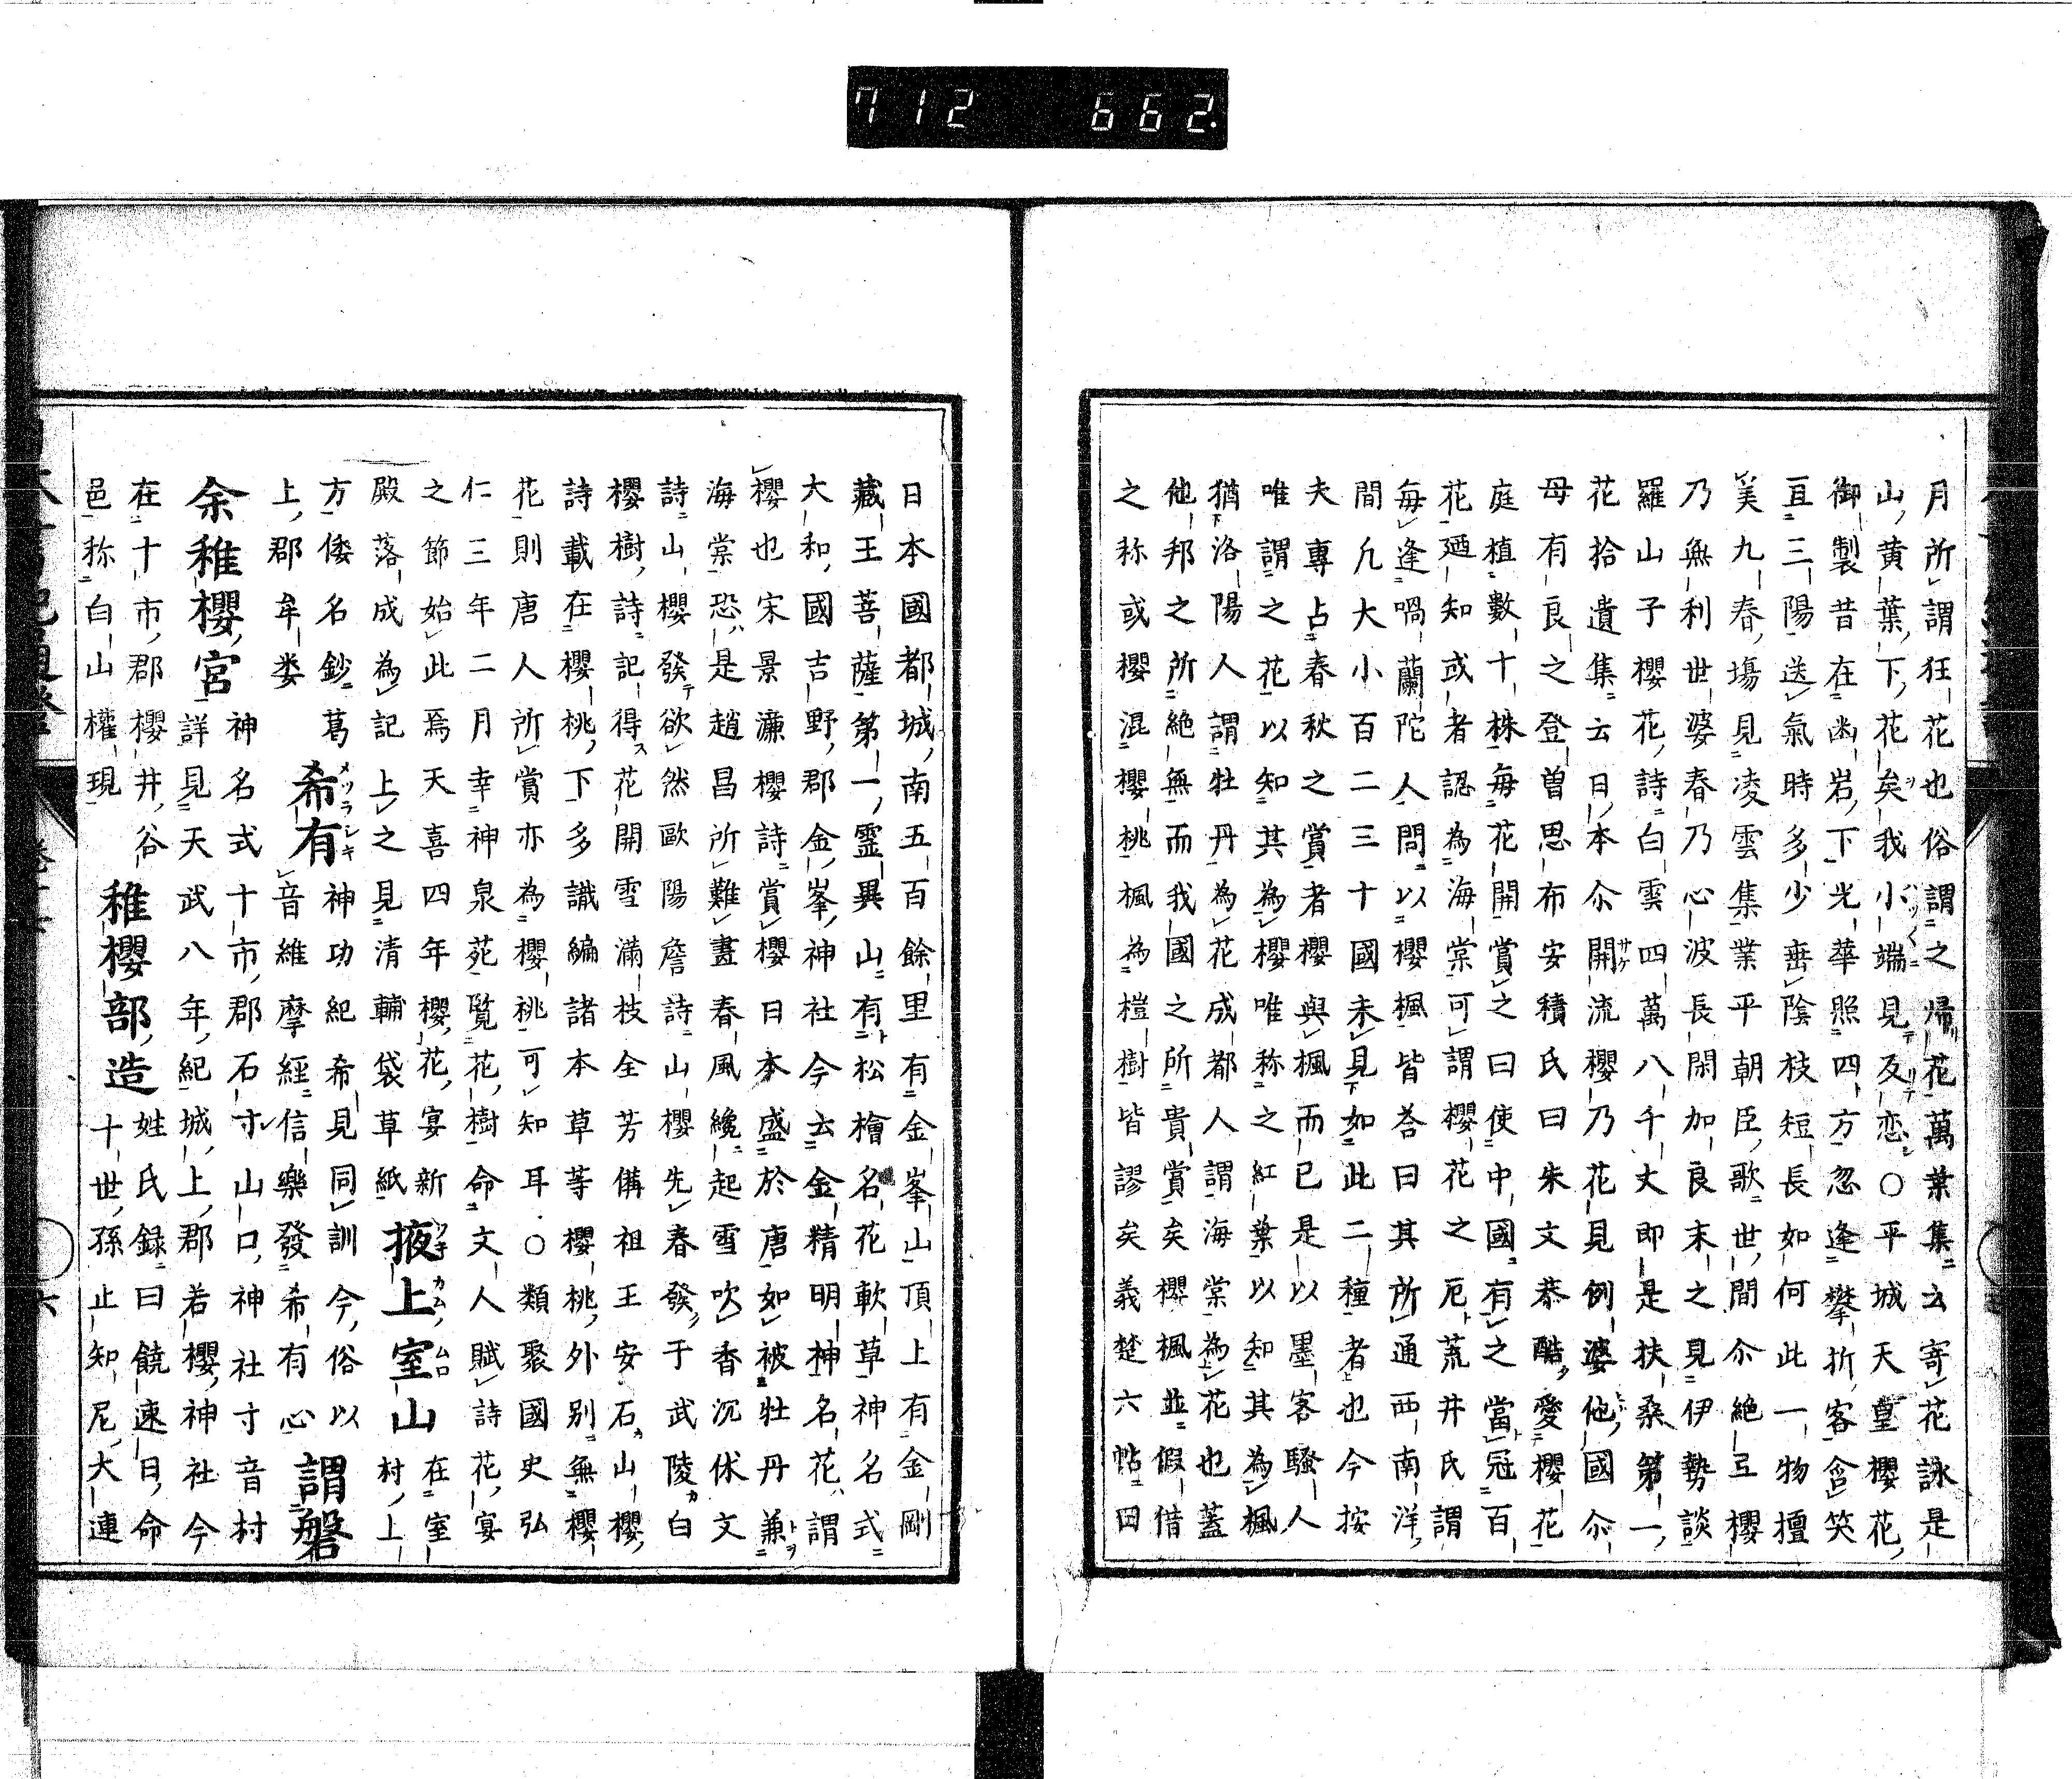 712 662.
月所謂狂花也俗謂之帰花萬葉集云寄花詠是
山黄葉下花矣我小端見反恋○平城天皇櫻花
御製昔在幽岩下光華照四方忽逢攀折客含笑
亘三陽送氣時多少垂陰枝短長如何此一物擅
美九春場見凌雲集業平朝臣歌世間尒絶弖櫻
乃無利世婆春乃心波長閑加良末之見伊勢談
羅山子櫻花詩白雲四萬八千丈即是扶桑第一
花拾遺集云日本尒開流櫻乃花見例婆他國尒
母有良之登曽思布安積氏曰朱文恭酷愛櫻花
庭植數十株每花開賞之曰使中國有之當冠百
花廼知或者認為海棠可謂櫻花之厄荒井氏謂
每逢喎蘭陀人問以櫻楓皆荅曰其所通西南洋
間凢大小百二三十國未見如此二種者也今按
夫專占春秋之賞者櫻與楓而已是以墨客騷人
唯謂之花以知其為櫻唯称之紅葉以知其為楓
猶洛陽人謂牡丹為花成都人謂海棠為花也蓋
他邦之所絶無而我國之所貴賞矣櫻楓並假借
之称或櫻混櫻桃楓為榿樹皆謬矣義楚六帖曰
日本國都城南五百餘里有金峯山頂上有金剛
藏王菩薩第一靈異山有松檜名花軟草神名式
大和國吉野郡金峯神社今云金精明神名花謂
櫻也宋景濂櫻詩賞櫻日本盛於唐如被牡丹兼
海棠恐是趙昌所難畫春風纔起雪吹香沉休文
詩山櫻發欲然歐陽詹詩山櫻先春發于武陵白
櫻樹詩記得花開雪滿枝全芳備祖王安石山櫻
詩載在櫻桃下多識編諸本草等櫻桃外別無櫻
花則唐人所賞亦為櫻桃可知耳○類聚國史弘
仁三年二月幸神泉苑覧花樹命文人賦詩花宴
之節始此焉天喜四年櫻花宴新
殿落成為記上之見清輔袋草紙
掖上室山
在室
村上
方倭名鈔葛
上郡牟婁
希有
神功紀希見同訓今俗以
音維摩經信樂發希有心
謂磐
余稚櫻宮
神名式十市郡石寸山口神社寸音村
詳見天武八年紀城上郡若櫻神社今
在十市郡櫻井谷
邑称白山權現
稚櫻部造
姓氏録曰饒速日命
十世孫止知尼大連
六